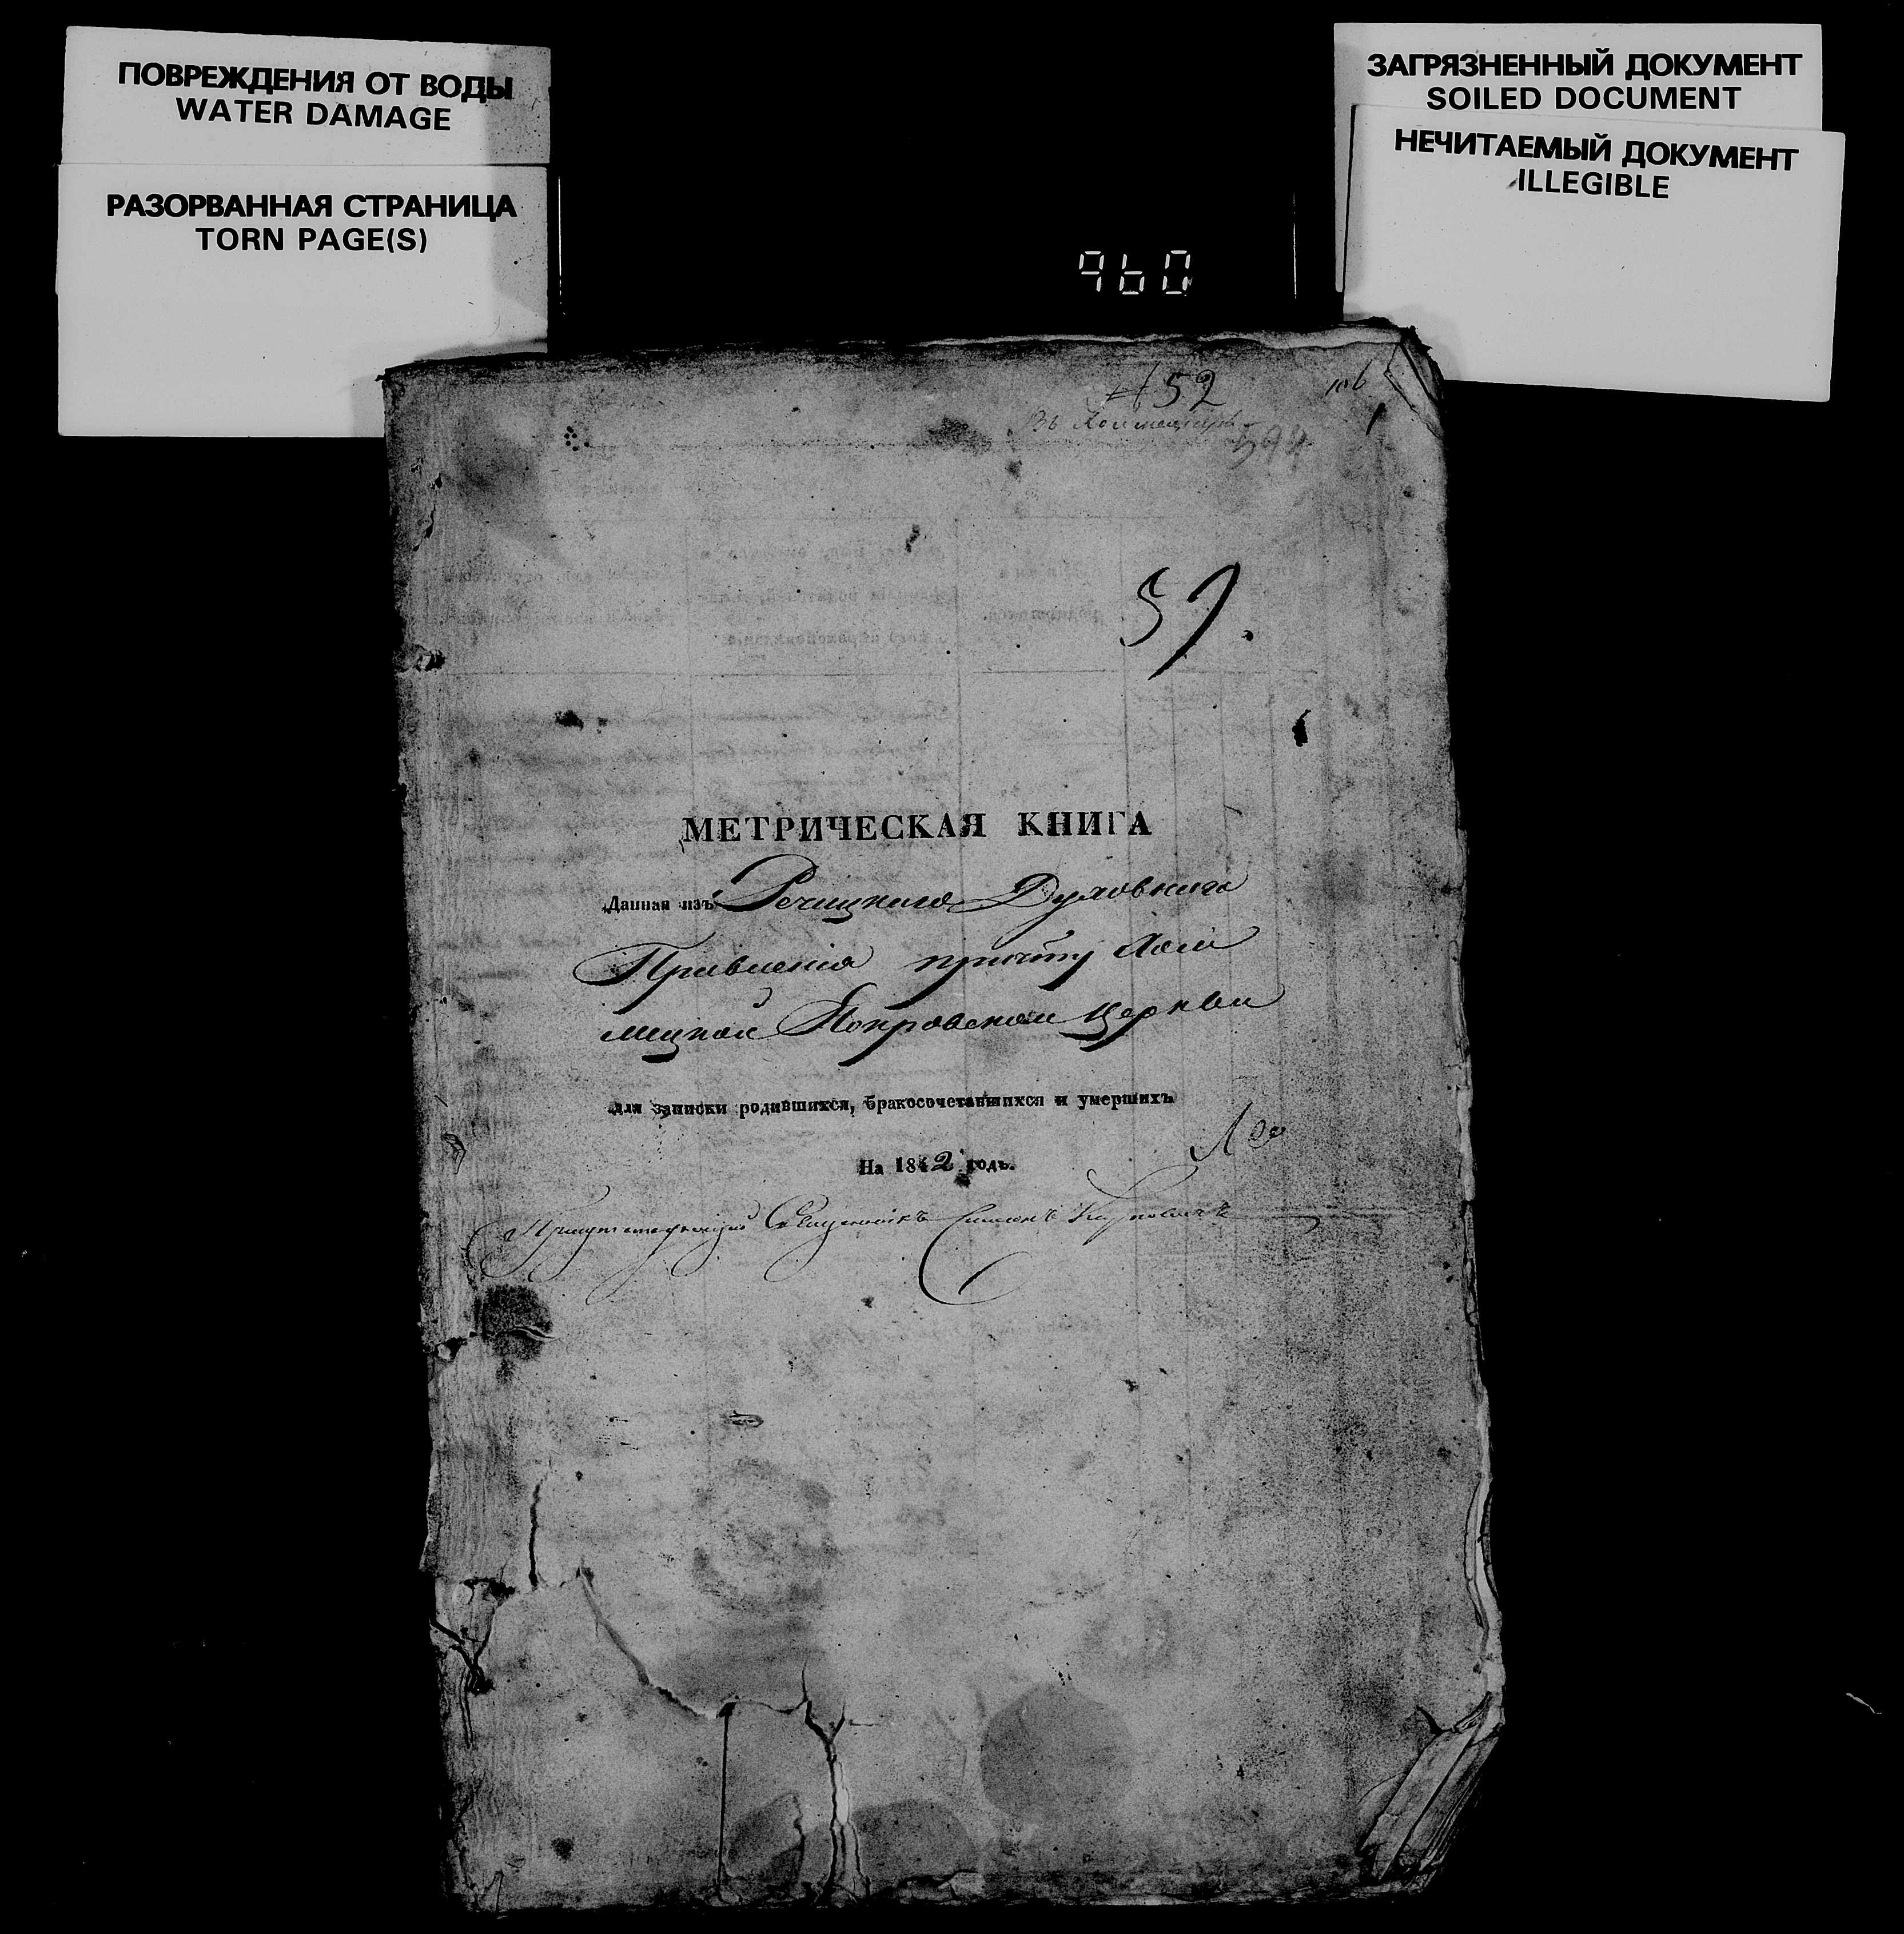 ПОВРЕЖДЕНИЯ ОТ ВОДЫ
WATER DAMAGE
РАЗОРВАННАЯ СТРАНИЦА
TORN PAGE(S)
ЗАГРЯЗНЕННЫЙ ДОКУМЕНТ
SOILED DOCUMENT
НЕЧИТАЕМЫЙ ДОКУМЕНТ
ILLEGIBLE
960
52
106
МЕТРИЧЕСКАЯ КНИГА
Данная изъ Речицкаго Духовнаго
Правленія причту Хол
мецкой Покровской Церкви
для записки родившихся, бракосочетавшихся и умершихъ
На 1842 годъ.
Присутствующій Священникъ Симонъ Карповичъ